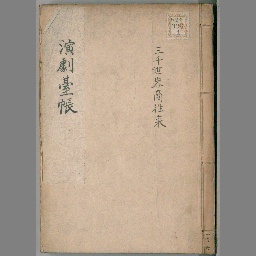 演劇臺帳
三千世界商往来